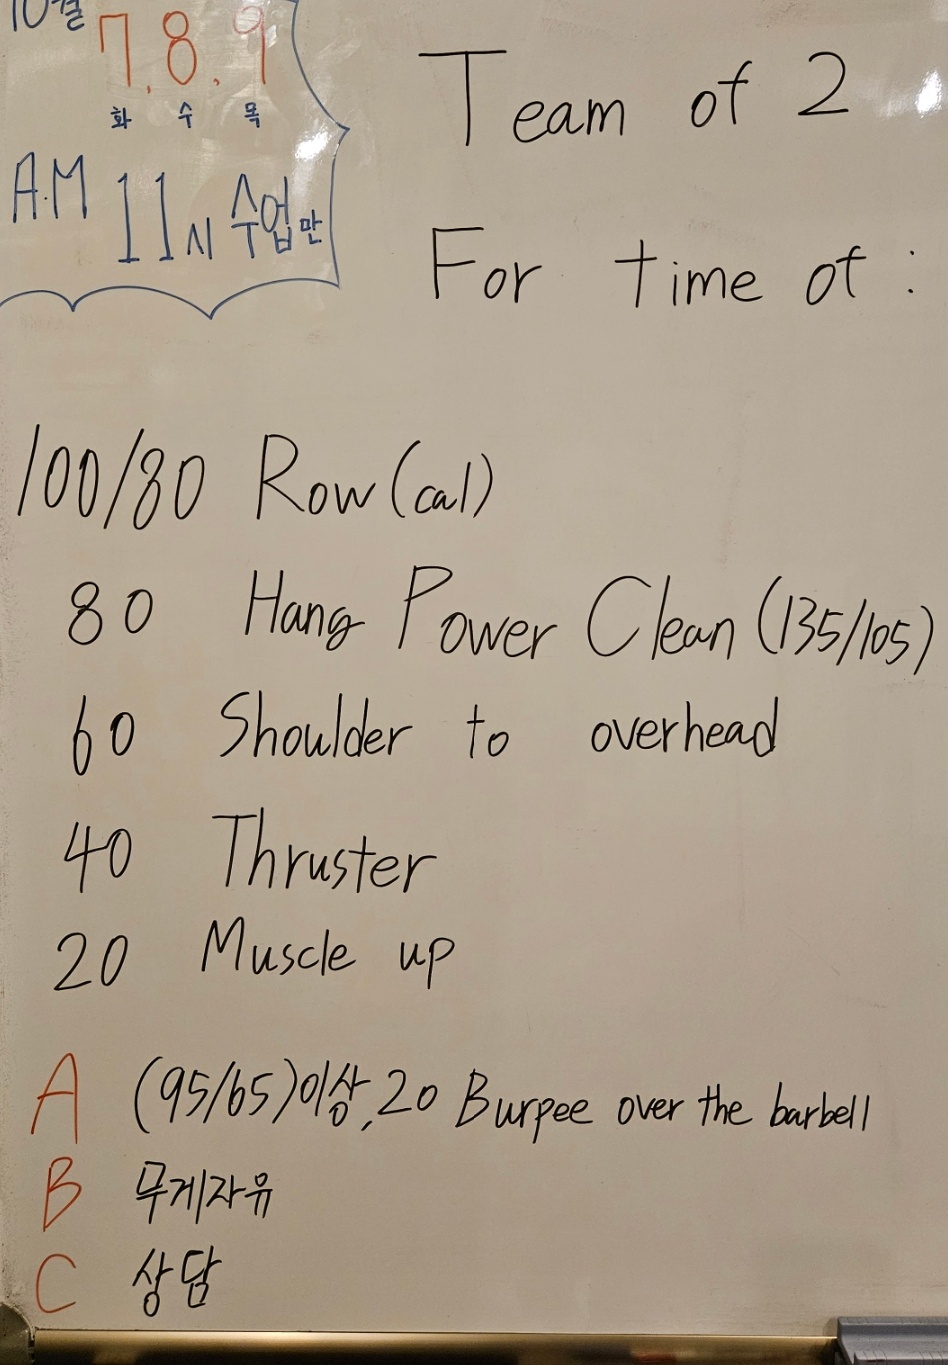 10월
7, 8, 9
화 수 목
A.M 11시 수업만
Team of 2
For time of :
100/80 Row (cal)
80 Hang Power Clean (135/105)
60 Shoulder to overhead
40 Thruster
20 Muscle up
A (95/65)이상, 20 Burpee over the barbell
B 무게자유
C 상담